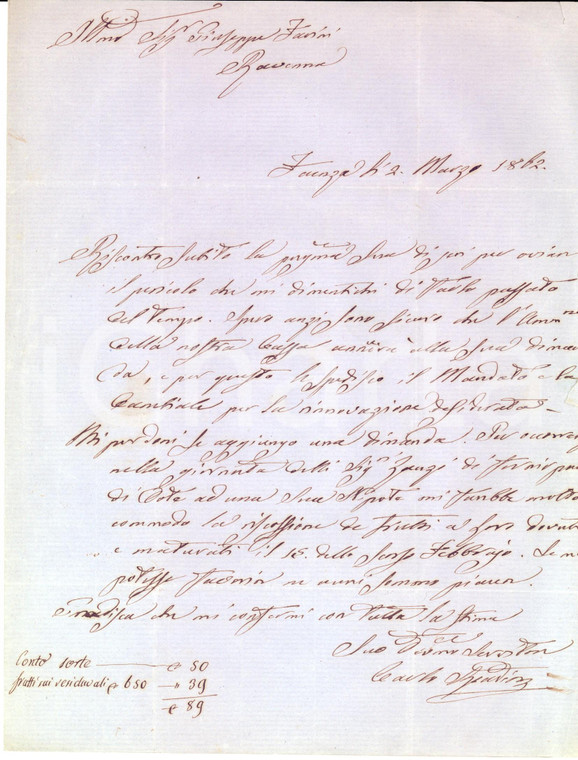 Sig.r Giuseppe
Ravenna
Faenza li 2. Marzo 1862.
Riscontro subito la sua di jeri per ovviare
il pericolo che mi dimentichi di farlo passato
del tempo. Spero anzi sono sicuro che l'Amm.ne
della nostra Cassa annuirà alla sua diman
da, e per questo le spedisco il Mandato e la
Cambiale per la rinnovazione desiderata
Mi perdoni se aggiungo una dimanda. Per
nella giornata delli Sig.ri di
di Dote ad una sua Nipote mi farebbe molto
commodo la riscossione de frutti a
e maturati il 15. dello scorso Febbrajo. Se mi
potesse favorire
che mi confermi con tutta la stima
Suo Servitore
Carlo
Conto sorte 50
frutti sui residuali 650 — " 39
89